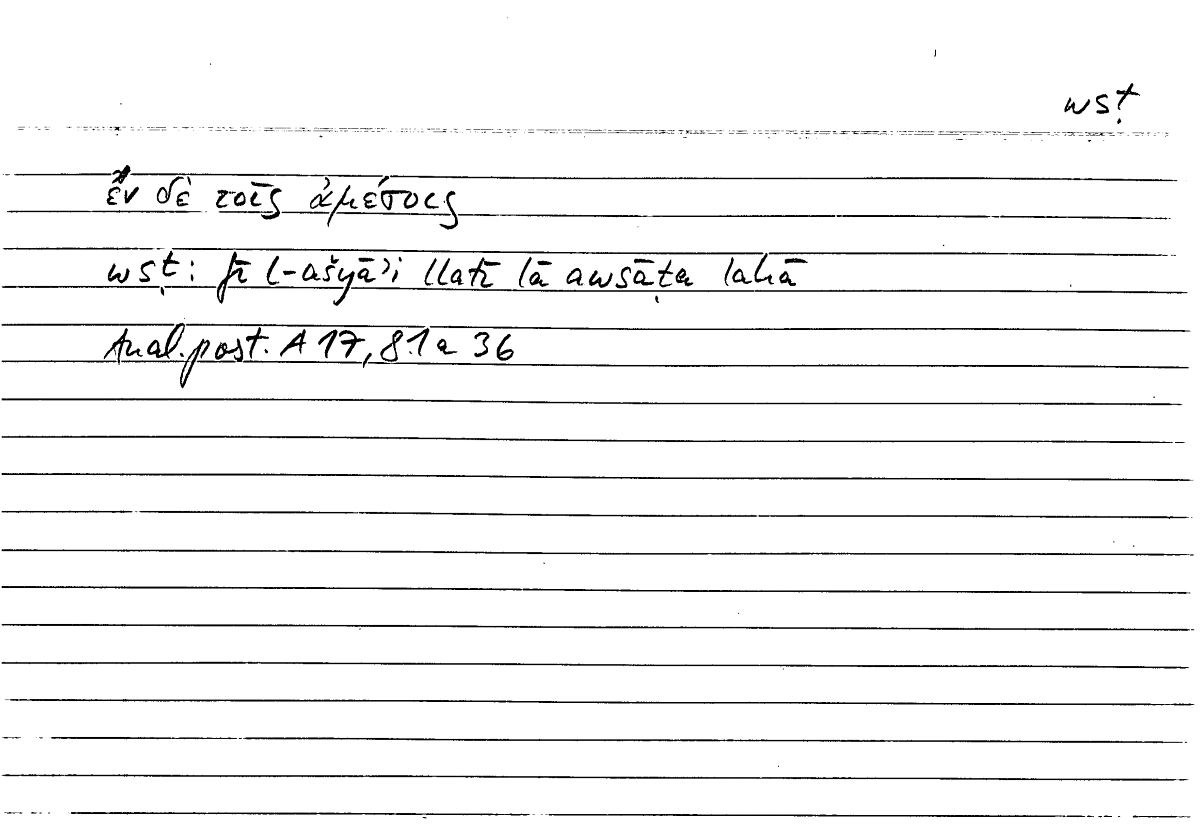 wsṭ
ἐν δὲ τοῖς ἀμέσοις
wsṭ: fī l-ašyāʾi llatī lā awsāṭa lahā
Anal. post. A 17, 81a 36